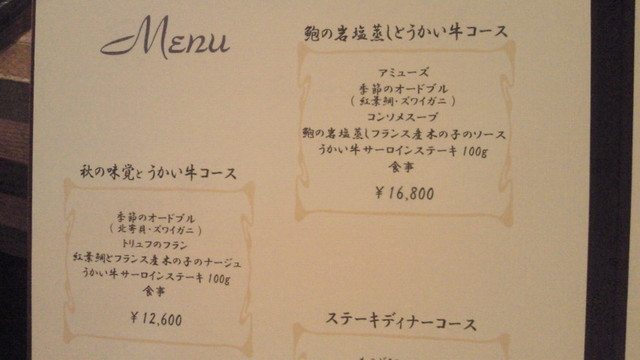 Menu
鮑の岩塩蒸しとうかい牛コース
アミューズ
季節のオードブル
(紅葉鯛・ズワイガニ)
コンソメスープ
鮑の岩塩蒸しフランス産木の子のソース
うかい牛サーロインステーキ100g
食事
¥16,800
秋の味覚とうかい牛コース
季節のオードブル
(北寄貝・ズワイガニ)
トリュフのフラン
紅葉鯛とフランス産木の子のナージュ
うかい牛サーロインステーキ100g
食事
¥12,600
ステーキディナーコース